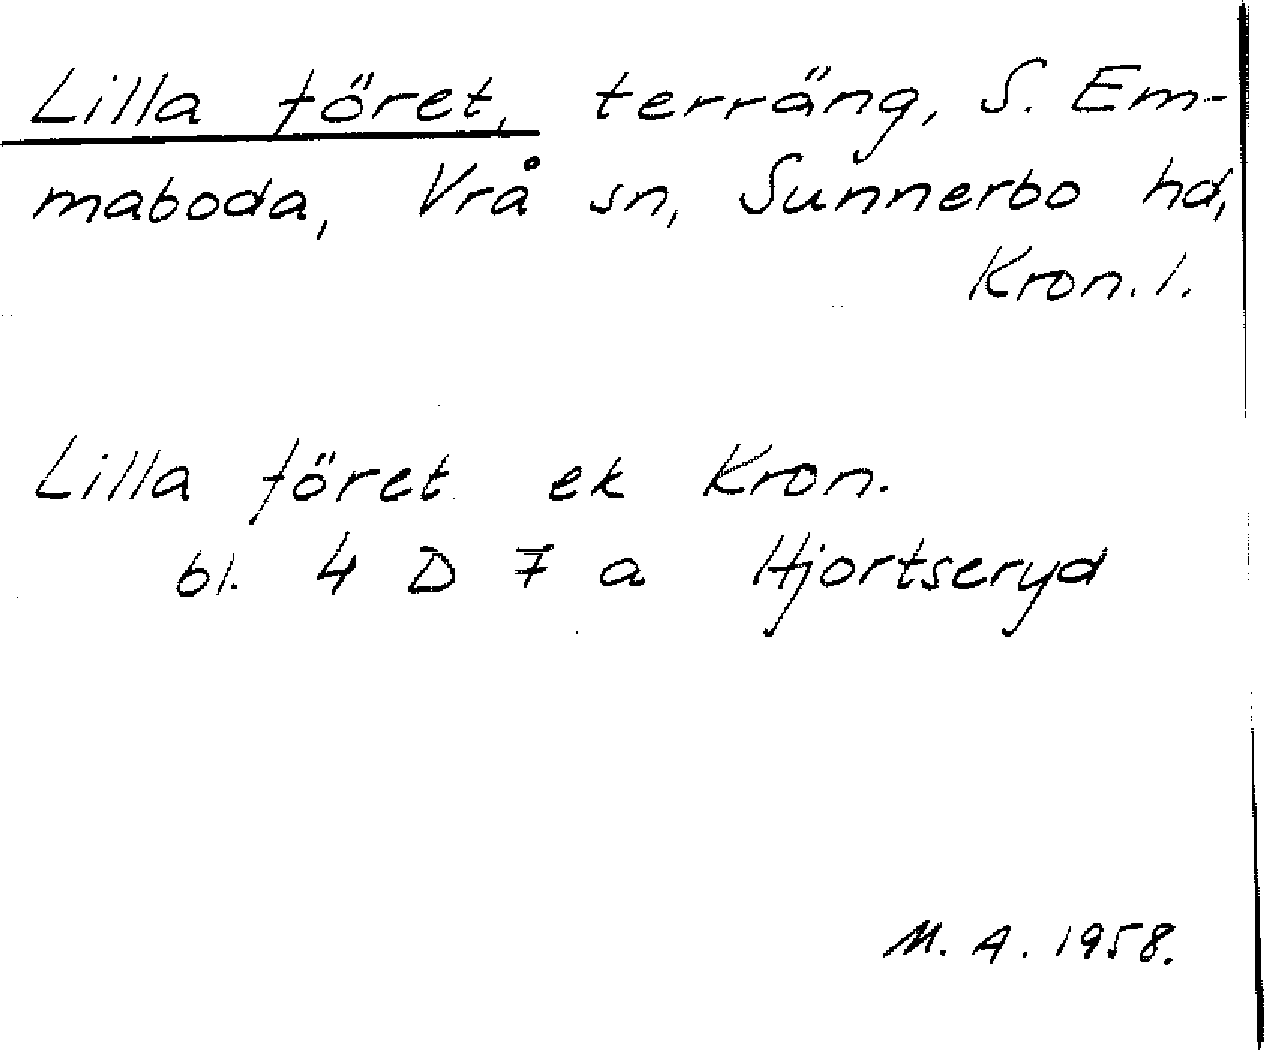 Lilla föret, terräng, S. Em-
maboda, Vrå sn, Sunnerbo hd,
Kron. l.
Lilla föret ek Kron.
bl. 4 D 7 a Hjortseryd
M. A. 1958.